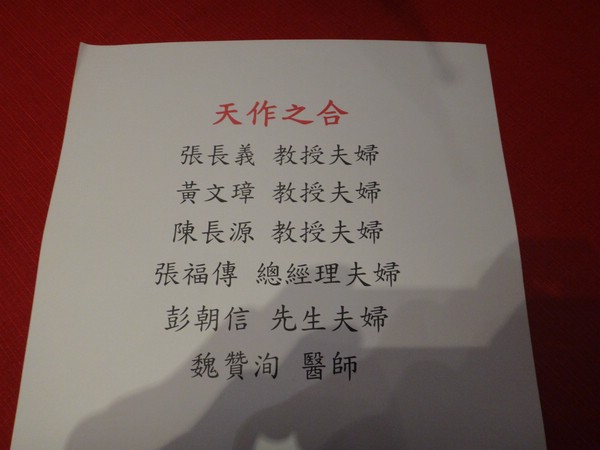 天作之合
張長義 教授夫婦
黃文璋 教授夫婦
陳長源 教授夫婦
張福傳 總經理夫婦
彭朝信 先生夫婦
魏贊洵 醫師